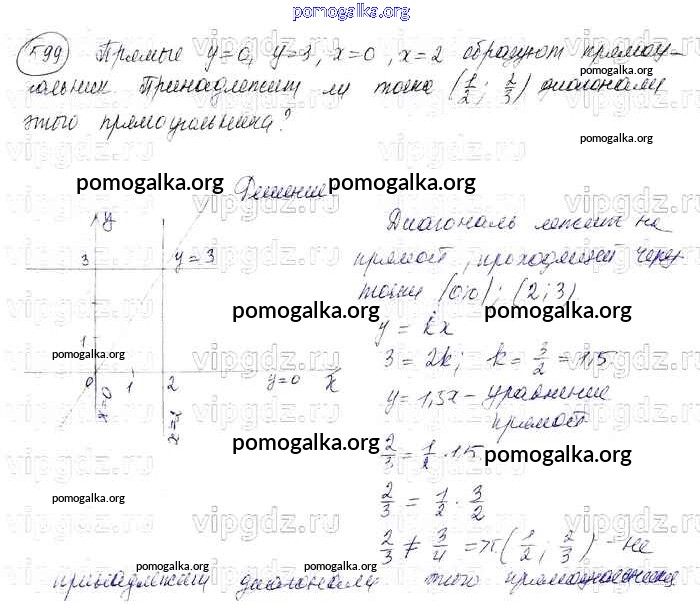 pomogalka.org
599 Прямые y=0, y=3, x=0, x=2 образуют прямоу-
гольник. Принадлежит ли точка (1/2; 2/3) диагонали
этого прямоугольника?
pomogalka.org
vipgdz.ru
Решение
pomogalka.org pomogalka.org
y
3 y=3
Диагональ лежит на
прямой, проходящей через
точки (0;0); (2;3)
pomogalka.org pomogalka.org
y = kx
1
pomogalka.org
3 = 2k; k = 3/2 = 1,5
0 1 2 y=0 x
x=0
y = 1,5x - уравнение
прямой
pomogalka.org pomogalka.org
2/3 = 1/2 · 1,5
pomogalka.org
2/3 = 1/2 · 3/2
pomogalka.org pomogalka.org
2/3 ≠ 3/4 => т. (1/2; 2/3) - не
принадлежит диагонали этого прямоугольника